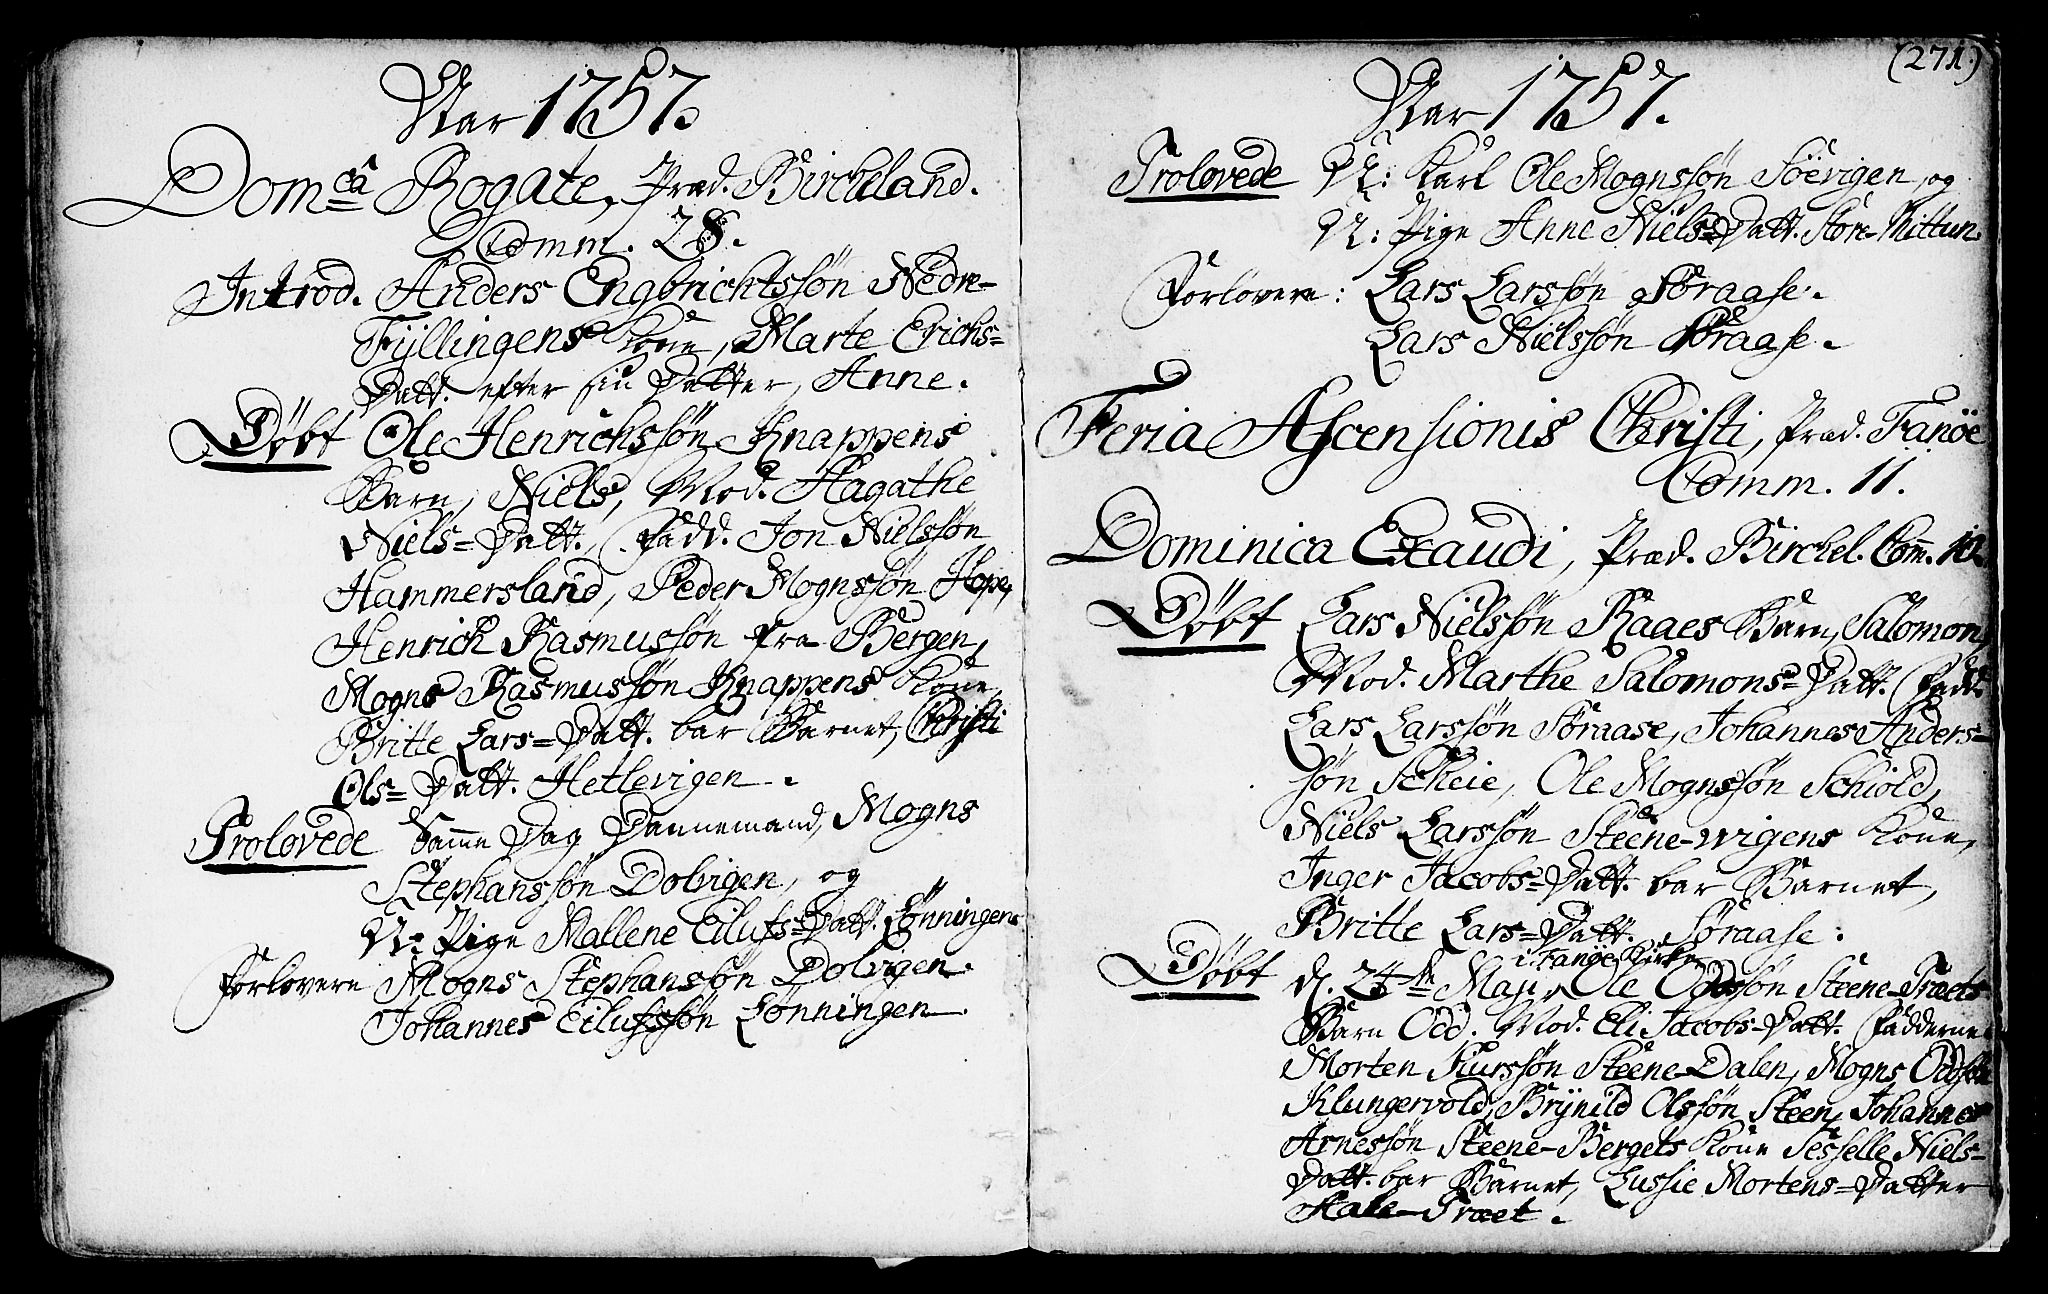 Aar 1757.
Dom:ca Rogate, Præd. Birckeland.
Comm. 28.
Introd. Anders Engbrichtssøn Nedre-
Fyllingens Kone, Marte Erichs=
Datt. efter sin Datter, Anne.
Døbt Ole Henrichssøn Knappens
Barn, Niels, Mod. Hagathe
Niels=Datt. Fadd. Jon Nielssøn
Hammersland, Peder Mognssøn Hope,
Henrich Rasmussøn fra Bergen,
Mogns Rasmussøn Knappens Kone,
Britte Lars=Datt. bar Barnet, Christi
Ols=Datt. Hetlevigen.
Trolovede Samme Dag Dannemand, Mogns
Stephanssøn Dolvigen, og
N: Pige Mallene Eilufs=Datt. Lønningen
Forlovere Mogns Stephanssøn Dolvigen.
Johannes Eilufssøn Lønningen.
(271.)
Aar 1757.
Trolovede N: Karl Ole Mognssøn Søevigen, og
N: Pige Anne Niels=Datt. Store-Mittun
Forlovere: Lars Larssøn Søraase.
Lars Nielssøn Søraase.
Feria Ascensionis Christi, Præd. Fanøe
Comm. 11.
Dominica Exaudi, Præd. Birckel. Com. 10.
Døbt Lars Nielssøn Raaes Barn, Salomon,
Mod. Marthe Salomons=Datt. Fadd.
Lars Larssøn Søraase, Johannes Anders=
søn Scheie, Ole Mognssøn Schiold,
Niels Larssøn Steene-wigens Kone,
Inger Jacobs=Datt. bar Barnet,
Britte Lars=Datt. Søraase.
i Fanøe Kirke
Døbt d. 24de Maji, Ole Oddssøn Steene-Træets
Barn Odd. Mod. Eli Jacobs=Datt. Fadderne
Morten Siurssøn Steene-Dalen, Mogns Oddssøn
Klungervold, Brynild Olssøn Steen, Johannes
Arnessøn Steene-Bergets Kone Sesselle Niels=
Datt. bar Barnet, Lussie Mortens=Datter
Hale-Træet.